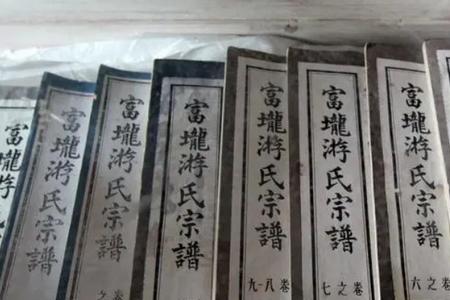 富壠游氏宗譜
卷之六
富壠游氏宗譜
卷之七
富壠游氏宗譜
卷八-九
富壠游氏宗譜
富壠游氏宗譜
卷之
富壠游氏宗譜
富壠游